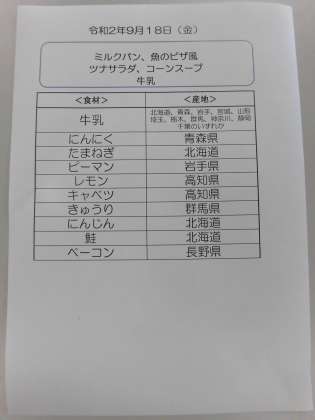 令和2年9月18日（金）
ミルクパン、魚のピザ風
ツナサラダ、コーンスープ
牛乳
＜食材＞ ＜産地＞
牛乳 北海道、青森、岩手、宮城、山形
埼玉、栃木、群馬、神奈川、静岡
千葉のいずれか
にんにく 青森県
たまねぎ 北海道
ピーマン 岩手県
レモン 高知県
キャベツ 高知県
きゅうり 群馬県
にんじん 北海道
鮭 北海道
ベーコン 長野県